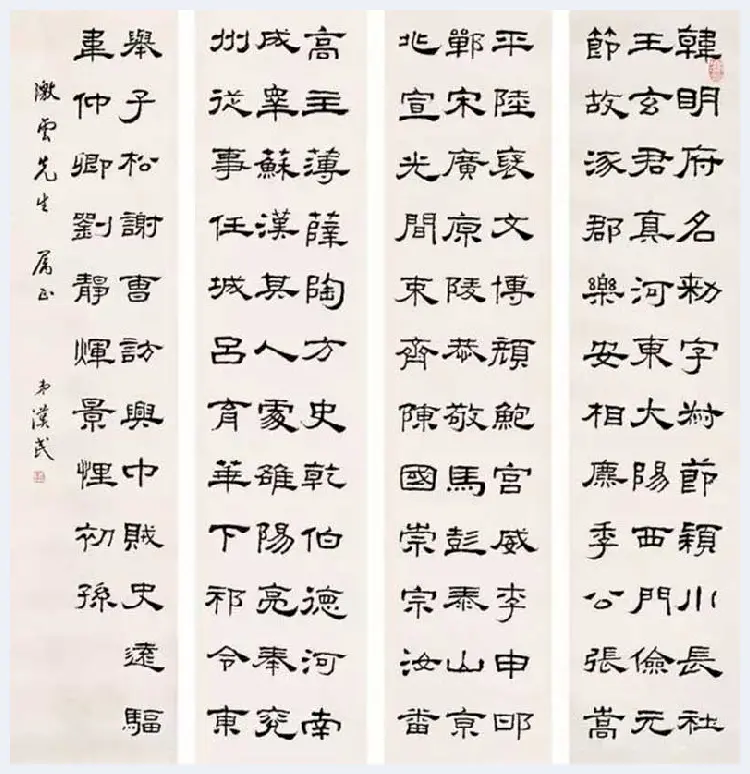 韓明府名勑字叔節穎川長社
王玄君真河東大陽西門儉元
節故涿郡樂安相廉季公張嵩
平陸襄文博顏鮑宮威李申
鄲宋廣原陵恭敬馬彭泰山京
北宣光間束齊陳國崇宗汝番
高主薄薛陶方史乾伯德河南
成睾蘇漢其人處雒陽亮奉兖
州從事任城呂育華下邳令東
舉子松謝曹訪興中賊史遠驅
車仲卿劉靜煇景悝初孫
澂雲先生 屬正 弟漢民